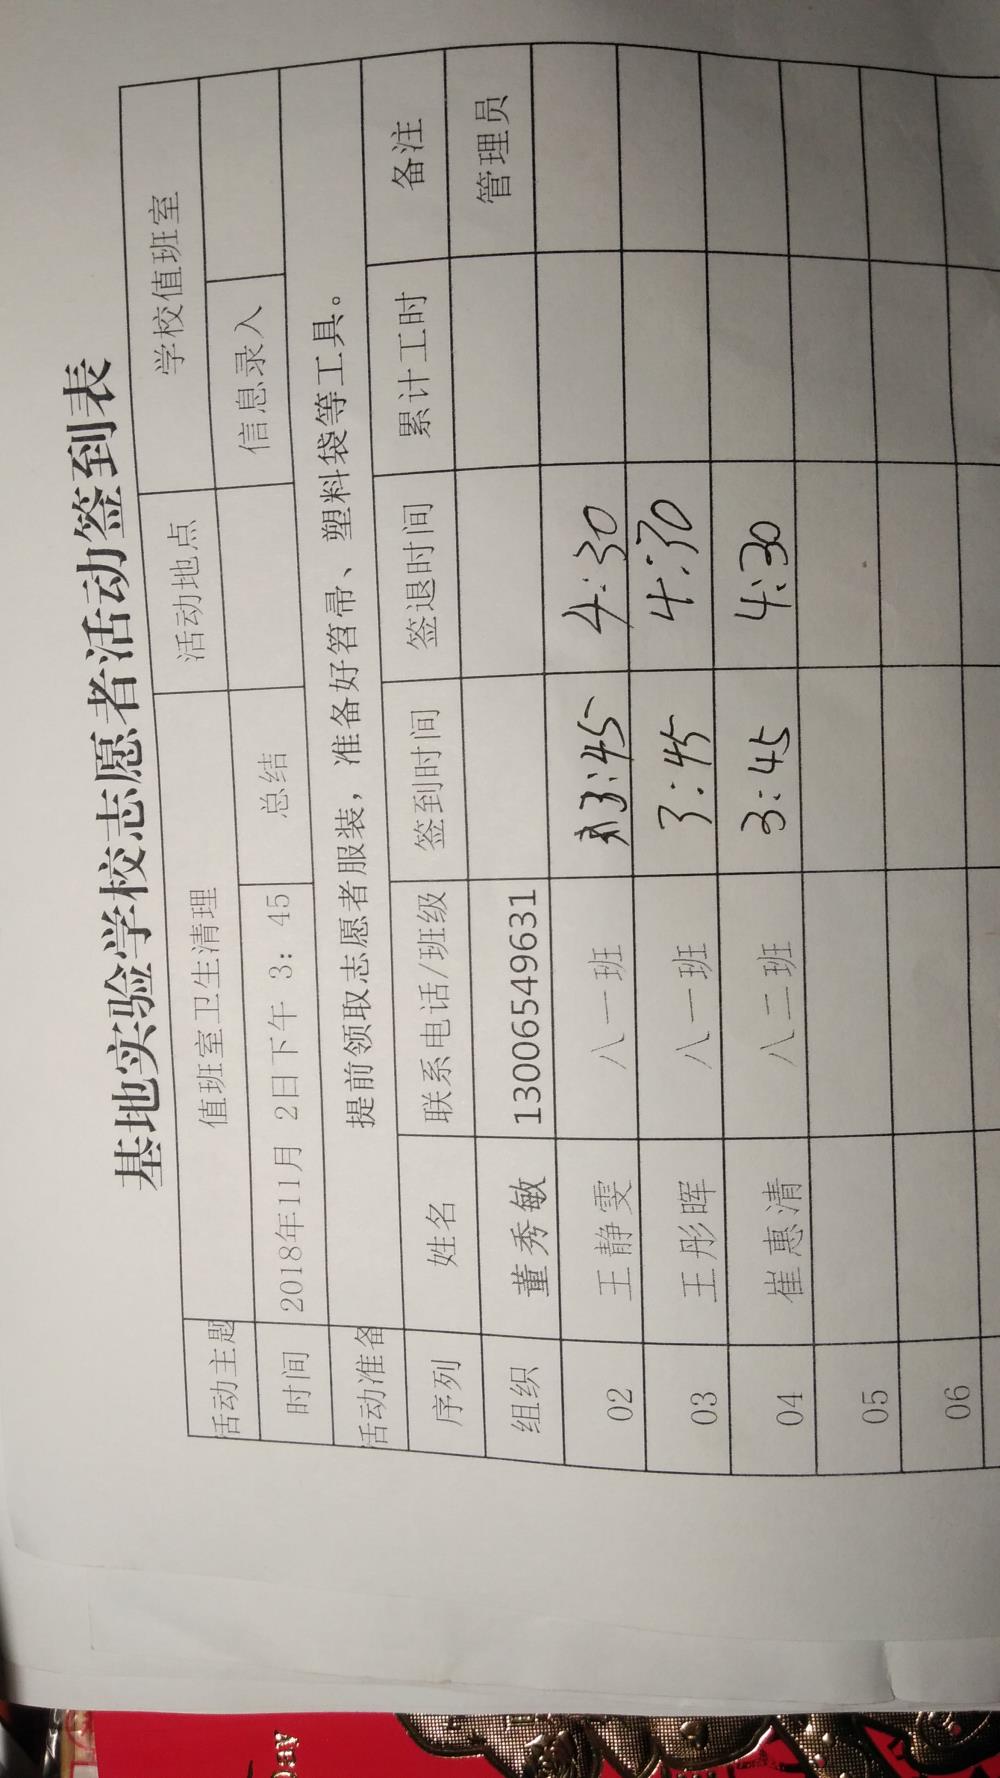 基地实验学校志愿者活动签到表
活动主题 值班室卫生清理 活动地点 学校值班室
时间 2018年11月 2日下午 3：45 总结 信息录入
活动准备 提前领取志愿者服装，准备好笤帚、塑料袋等工具。
序列 姓名 联系电话/班级 签到时间 签退时间 累计工时 备注
组织 董秀敏 13006549631 管理员
02 王静雯 八一班 3:45 4:30
03 王彤晖 八一班 3:45 4:30
04 崔惠清 八二班 3:45 4:30
05
06
Day